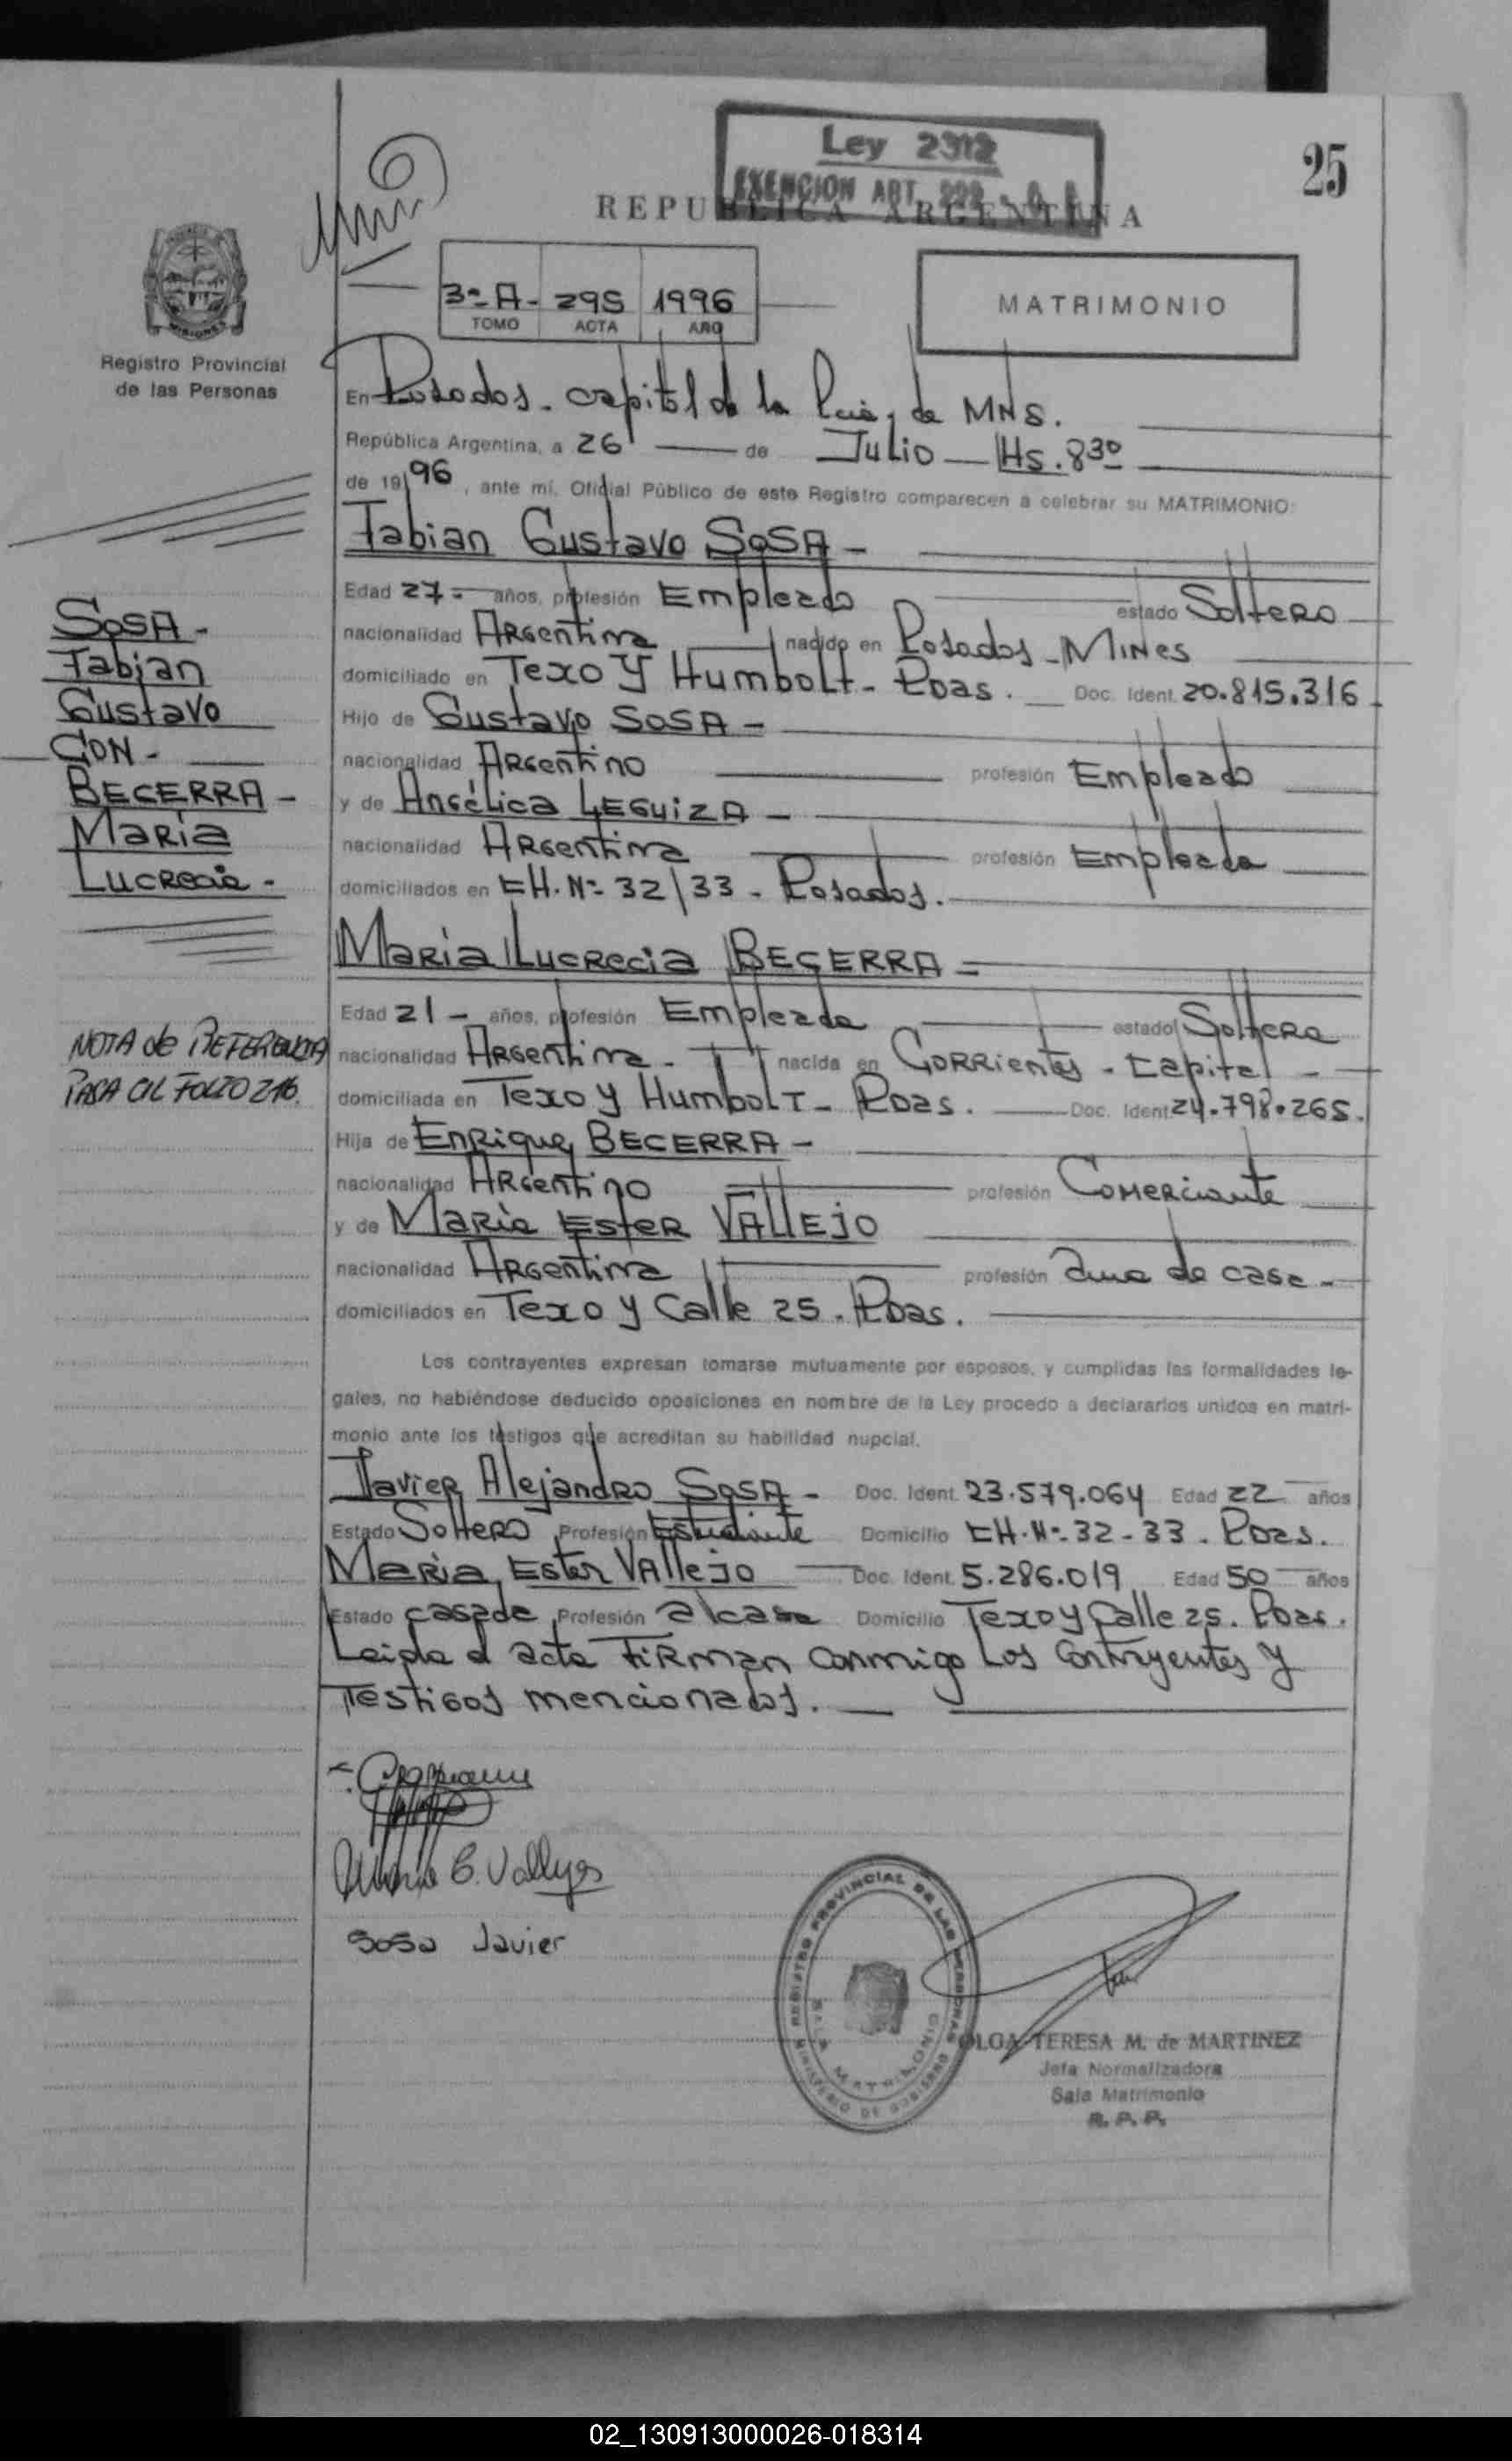 Ley 2312
EXENCION ART. 222 -
25
REPUBLICA ARGENTINA
3º-A- 295 1996
TOMO ACTA AÑO
MATRIMONIO
MISIONES
Registro Provincial
de las Personas
En Posadas. capital de la Pcia, de MNS.
República Argentina, a 26 de Julio Hs. 8 30
de 1996, ante mí, Oficial Público de este Registro comparecen a celebrar su MATRIMONIO:
Fabian Gustavo SOSA -
Edad 27= años, profesión Empleado estado Soltero
nacionalidad Argentina nacido en Posadas - Mines
domiciliado en Texo y Humbolt - Pdas. Doc. Ident. 20.815.316
Hijo de Gustavo SOSA -
nacionalidad Argentino profesión Empleado
y de Angélica LEGUIZA -
nacionalidad Argentina profesión Empleada
domiciliados en CH. Nº 32/33 - Posadas.
SOSA -
Fabian
Gustavo
CON -
BECERRA -
Maria
Lucrecia -
Maria Lucrecia BECERRA =
Edad 21 - años, profesión Empleada estado Soltera
nacionalidad Argentina - nacida en Corrientes - Capital -
domiciliada en Texo y Humbolt - Pdas. Doc. Ident 24.798.265.
Hija de Enrique BECERRA -
nacionalidad Argentino profesión Comerciante
y de Maria Ester VALLEJO
nacionalidad Argentina profesión Ama de casa -
domiciliados en Texo y Calle 25. Pdas.
NOTA de REFERENCIA
PASA AL FOLIO 216.
Los contrayentes expresan tomarse mutuamente por esposos, y cumplidas las formalidades le-
gales, no habiéndose deducido oposiciones en nombre de la Ley procedo a declararlos unidos en matri-
monio ante los testigos que acreditan su habilidad nupcial.
Javier Alejandro SOSA - Doc. Ident. 23.579.064 Edad 22 años
Estado Soltero Profesión Estudiante Domicilio CH. Nº 32-33. Pdas.
Maria Ester Vallejo Doc. Ident. 5.286.019 Edad 50 años
Estado casada Profesión a/casa Domicilio Texo y Calle 25. Pdas.
Leida el acta firman conmigo Los Contrayentes y
Testigos mencionados.
E. Vallejos
Sosa Javier
REGISTRO PROVINCIAL DE LAS PERSONAS
SALA MATRIMONIO
MINISTERIO DE GOBIERNO
OLGA TERESA M. de MARTINEZ
Jefa Normalizadora
Sala Matrimonio
R. P. P.
02_130913000026-018314